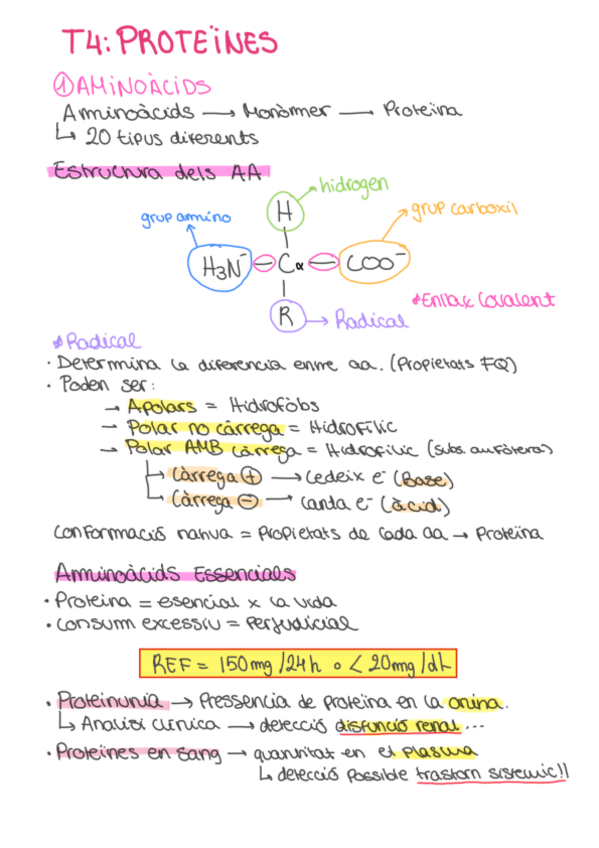 T4: PROTEÏNES
① AMINOÀCIDS
Aminoàcids → Monòmer — Proteïna
↳ 20 tipus diferents
Estructura dels AA
hidrogen
grup amino
H
grup carboxil
H3N⁻ — Cα — COO⁻
*Enllaç Covalent
R → Radical
*Radical
· Determina la diferencia entre aa. (Propietats FQ)
· Poden ser:
→ Apolars = Hidrofòbs
→ Polar no càrrega = Hidrofílic
→ Polar AMB càrrega = Hidrofílic (subs. amfòteras)
↳ Càrrega ⊕ → Cedeix e⁻ (Base)
↳ Càrrega ⊖ → Capta e⁻ (àcid)
Conformació nativa = Propietats de cada aa → Proteïna
Aminoàcids Essencials
· Proteïna = esencial x la vida
· Consum excessiu = Perjudicial
REF = 150mg/24h o < 20mg/dL
· Proteinuria → Pressencia de proteïna en la orina.
↳ Analisi clínica → detecció disfunció renal ...
· Proteïnes en sang → quantitat en el plasma
↳ detecció possible trastorn sistemic!!